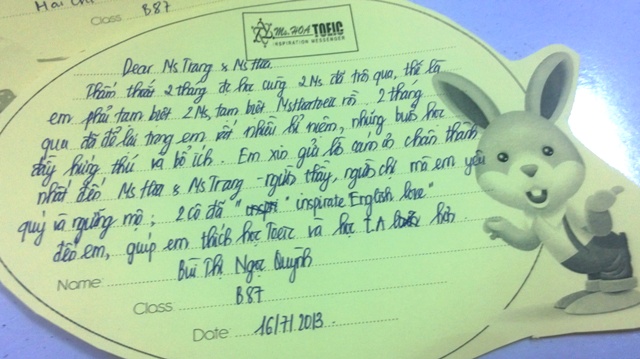 Class B87
Ms. HOA TOEIC
INSPIRATION MESSENGER
Dear Ms Trang & Ms Hoa.
Thấm thoát 2 tháng đc học cùng 2 Ms đã trôi qua, thế là
em phải tạm biệt 2 Ms, tạm biệt Mshoatoeic rồi. 2 tháng
qua đã để lại trong em rất nhiều kỉ niệm, những buổi học
đầy hứng thú và bổ ích. Em xin gửi lời cảm ơn chân thành
nhất đến Ms Hoa & Ms Trang - người thầy, người chị mà em yêu
quý và ngưỡng mộ; 2 cô đã " inspirate English love"
đến em, giúp em thích học Toeic và học T.A hơn.
Name: Bùi Thị Ngọc Quỳnh
Class B87
Date 16/7/2013